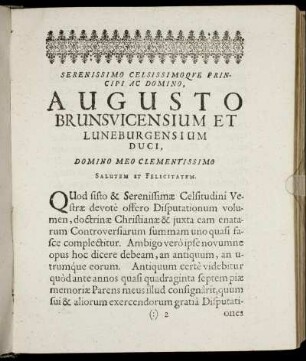 SERENISSIMO CELSISSIMOQVE PRIN-
CIPI AC DOMINO,
AUGUSTO
BRUNSVICENSIUM ET
LUNEBURGENSIUM
DUCI,
DOMINO MEO CLEMENTISSIMO
SALUTEM ET FELICITATEM.
QUod sisto & Serenissimæ Celsitudini Ve-
stræ devotè offero Disputationum volu-
men, doctrinæ Christianæ & juxta eam enata-
rum Controversiarum summam uno quasi fa-
sce complectitur. Ambigo verò ipse novumne
opus hoc dicere debeam, an antiquum, an u-
trumque eorum. Antiquum certè videbitur
quòd ante annos quasi quadraginta septem piæ
memoriæ Parens meus illud consignârit, quum
sui & aliorum exercendorum gratiâ Disputati-
(:) 2 ones